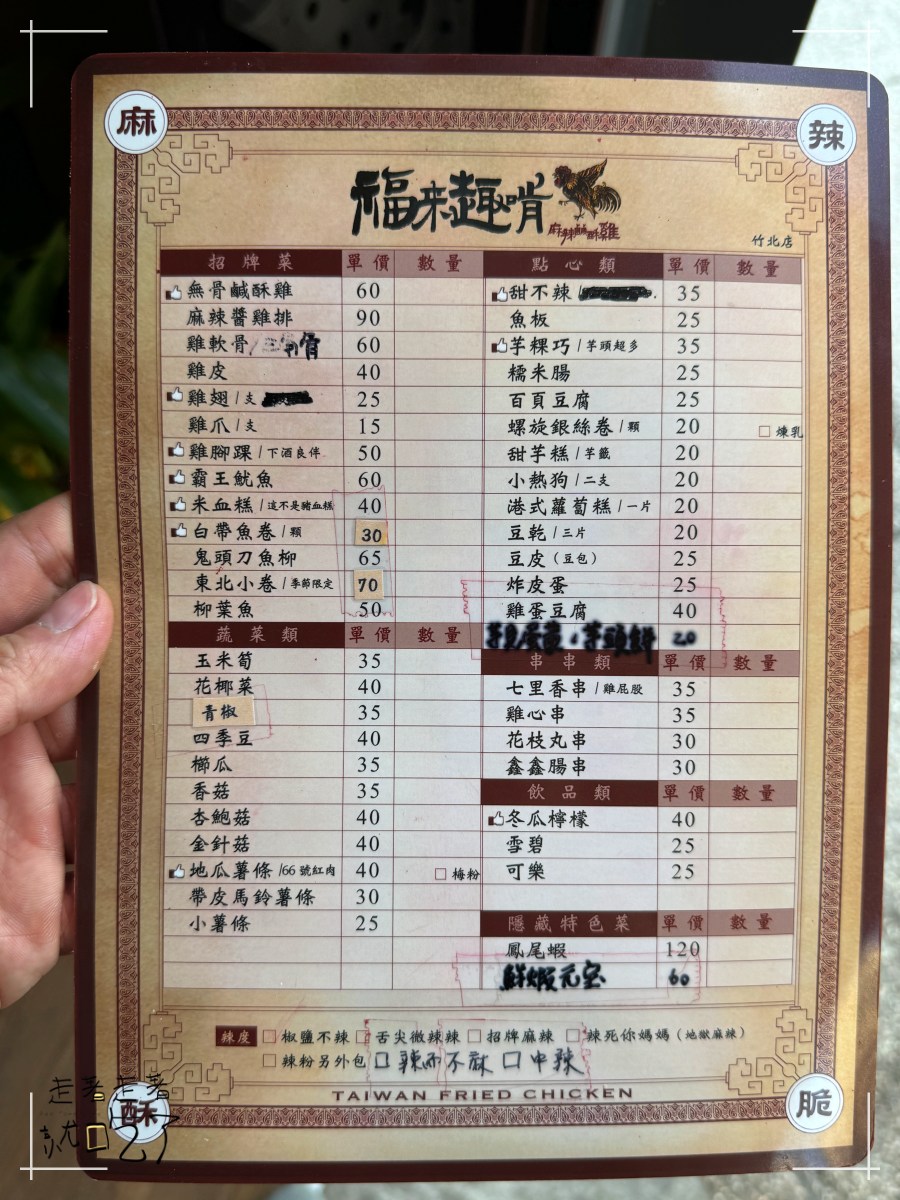 麻
辣
福來趣啃
麻辣鹹酥雞
竹北店
招牌菜 單價 數量
無骨鹹酥雞 60
麻辣醬雞排 90
雞軟骨/三角骨 60
雞皮 40
雞翅/支 25
雞爪/支 15
雞腳踝/下酒良伴 50
霸王魷魚 60
米血糕/這不是豬血糕 40
白帶魚卷/顆 30
鬼頭刀魚柳 65
東北小卷/季節限定 70
柳葉魚 50
蔬菜類 單價 數量
玉米筍 35
花椰菜 40
青椒 35
四季豆 40
櫛瓜 35
香菇 35
杏鮑菇 40
金針菇 40
地瓜薯條/66號紅肉 40 □ 梅粉
帶皮馬鈴薯條 30
小薯條 25
點心類 單價 數量
甜不辣 35
魚板 25
芋粿巧/芋頭超多 35
糯米腸 25
百頁豆腐 25
螺旋銀絲卷/顆 20 □ 煉乳
甜芋糕/芋籤 20
小熱狗/二支 20
港式蘿蔔糕/一片 20
豆乾/三片 20
豆皮(豆包) 25
炸皮蛋 25
雞蛋豆腐 40
20
串串類 單價 數量
七里香串/雞屁股 35
雞心串 35
花枝丸串 30
鑫鑫腸串 30
飲品類 單價 數量
冬瓜檸檬 40
雪碧 25
可樂 25
隱藏特色菜 單價 數量
鳳尾蝦 120
鮮蝦元宝 60
辣度 □ 椒鹽不辣 □ 舌尖微辣辣 □ 招牌麻辣 □ 辣死你媽媽(地獄麻辣)
□ 辣粉另外包 □ 辣而不麻 □ 中辣
TAIWAN FRIED CHICKEN
酥
脆
走著走著